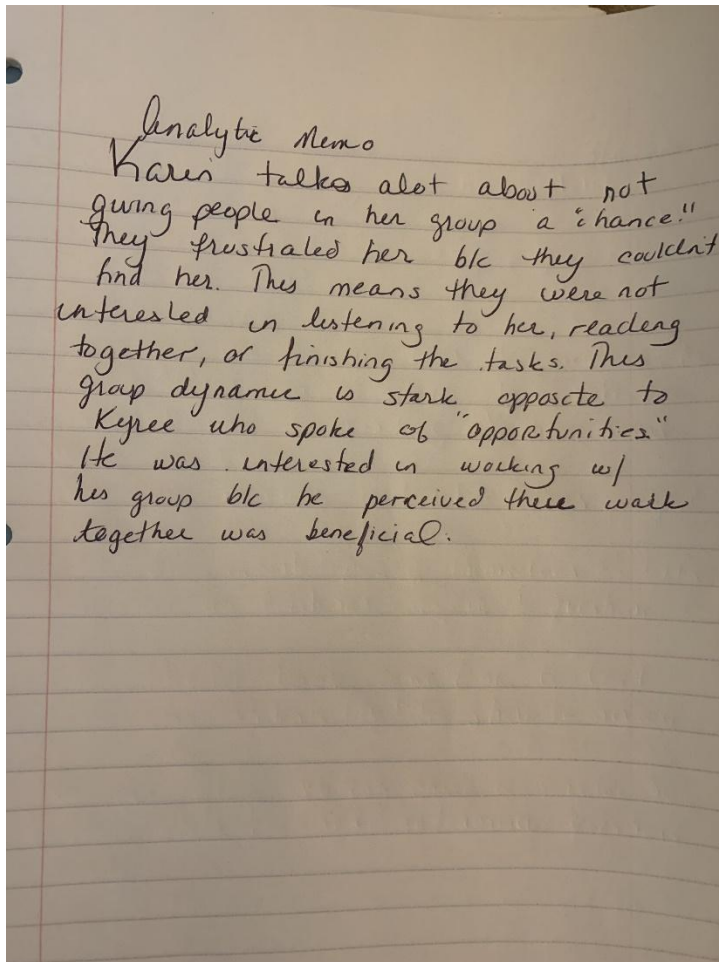 Analytic Memo
Karen talks alot about not
giving people in her group a "chance."
They frustrated her b/c they couldn't
find her. This means they were not
interested in listening to her, reading
together, or finishing the tasks. This
group dynamic is stark opposite to
Kyree who spoke of "opportunities."
He was interested in working w/
his group b/c he perceived there work
together was beneficial.